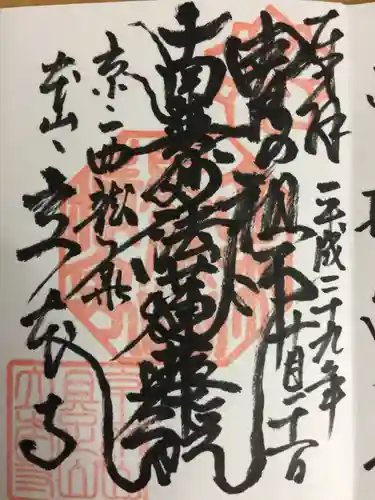 奉拝 平成二十九年十月二十一日
冑の祖師
南無妙法蓮華経
京、西龍華
本山、立本寺